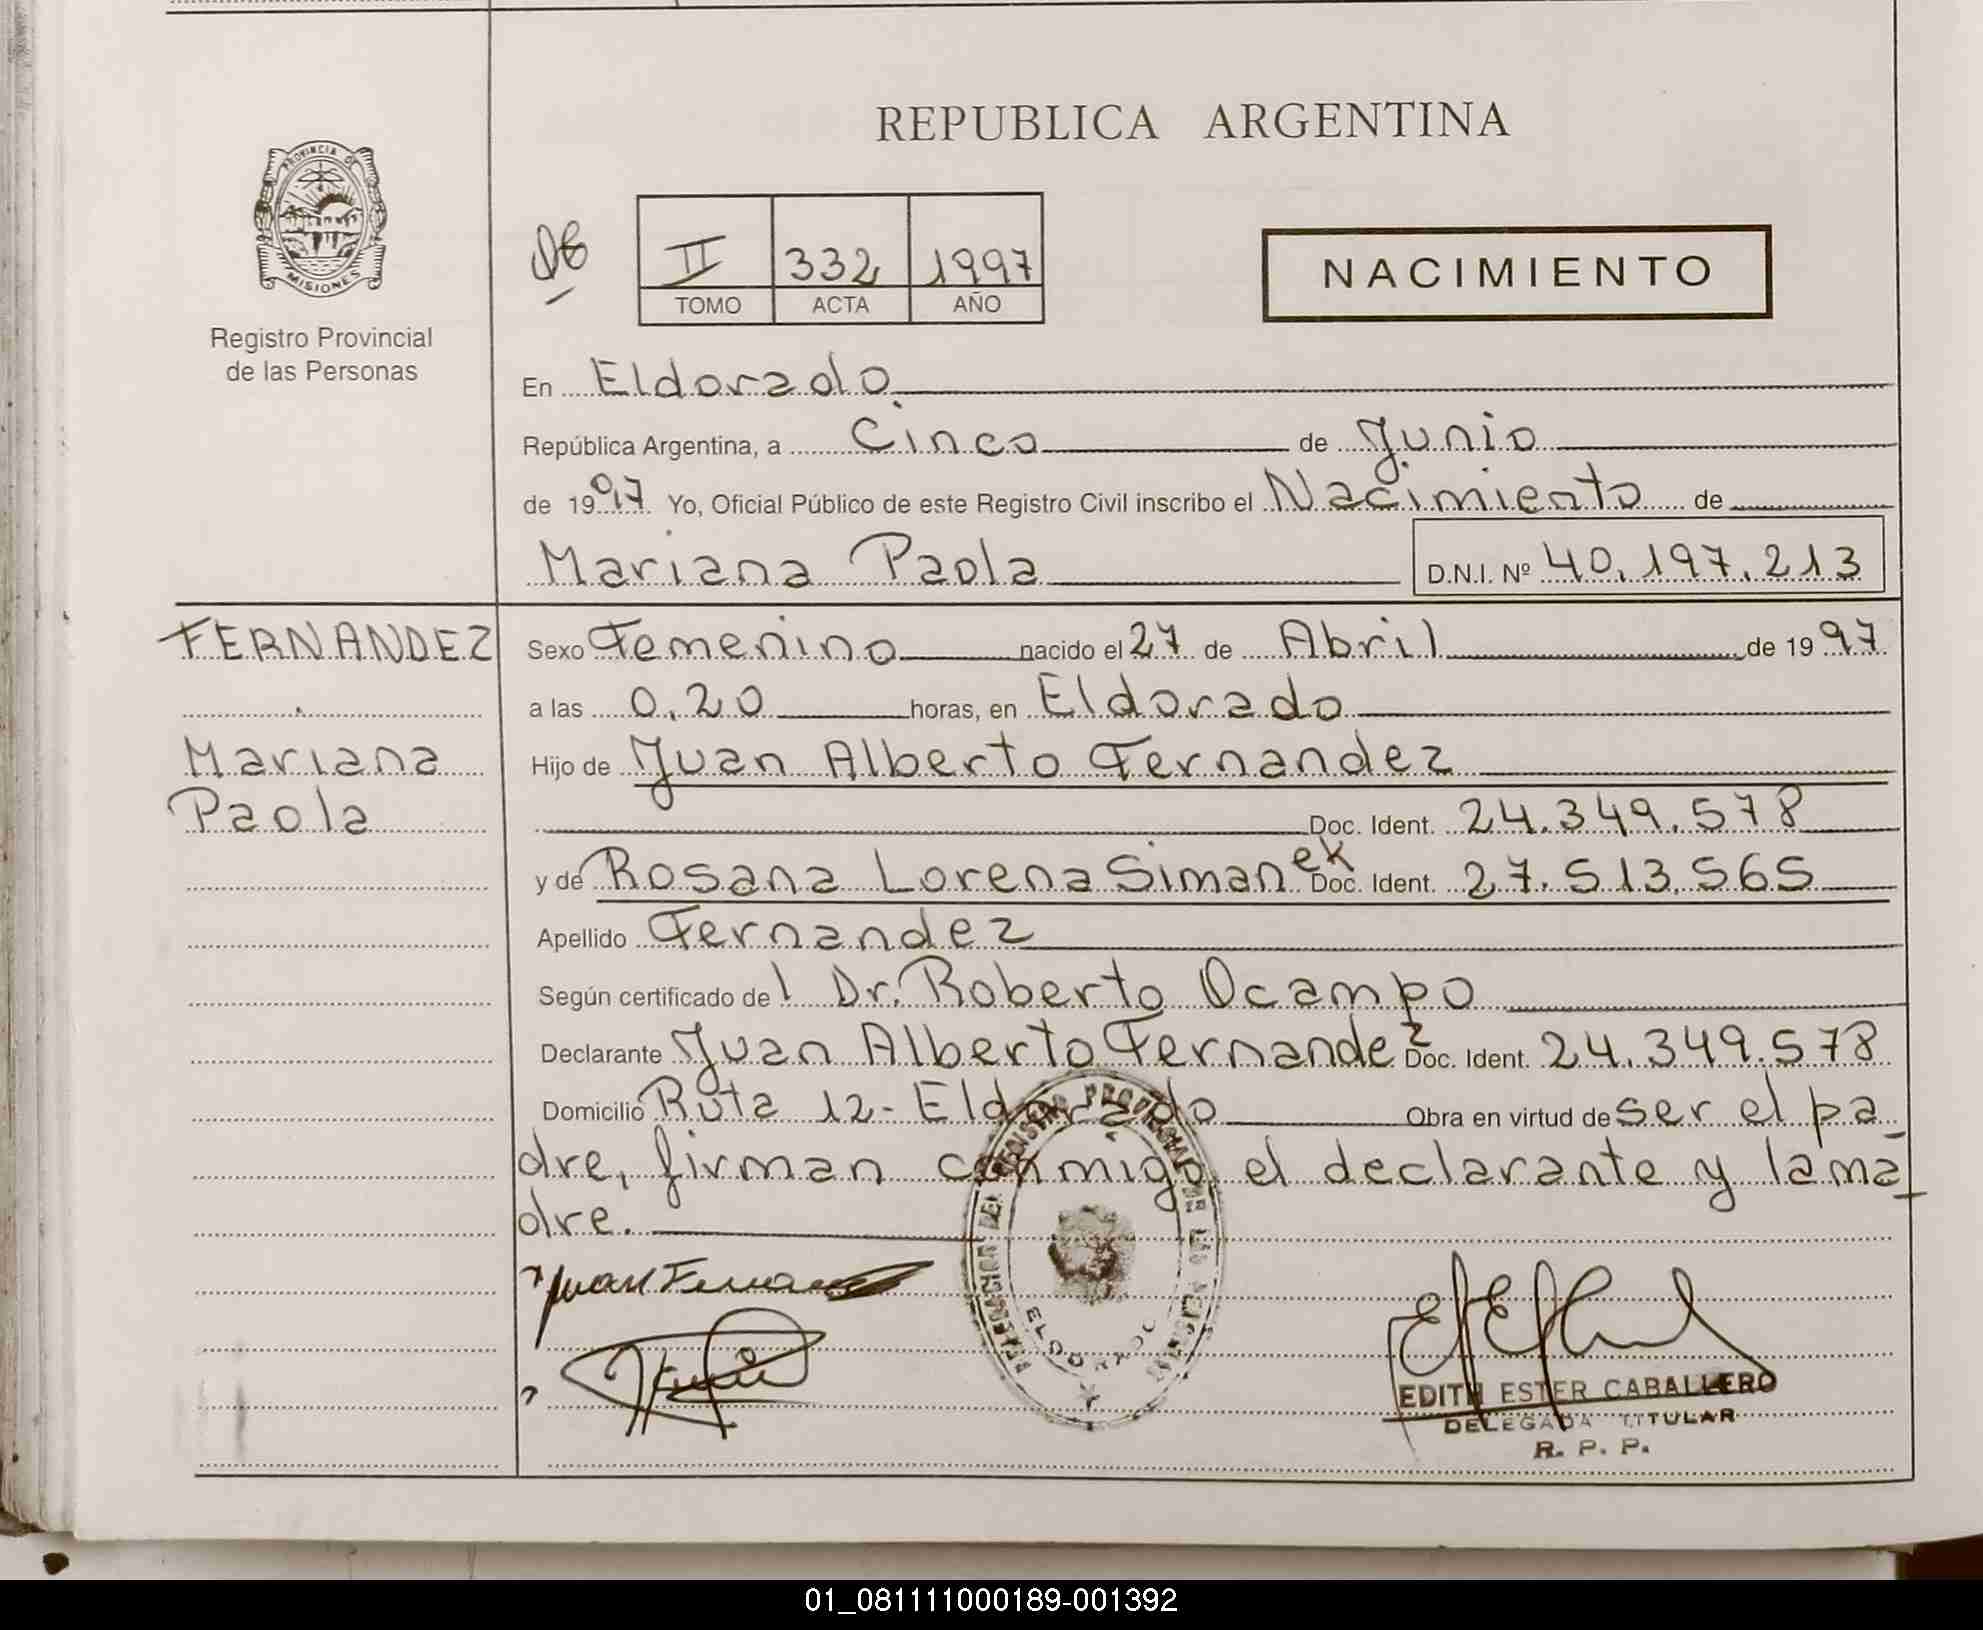 REPUBLICA ARGENTINA
PROVINCIA DE
MISIONES
Registro Provincial
de las Personas
II 332 1997
TOMO ACTA AÑO
NACIMIENTO
En Eldorado
República Argentina, a Cinco de Junio
de 1997 Yo, Oficial Público de este Registro Civil inscribo el Nacimiento de
Mariana Paola D.N.I. Nº 40.197.213
FERNANDEZ
Mariana
Paola
Sexo Femenino nacido el 27 de Abril de 1997
a las 0.20 horas, en Eldorado
Hijo de Juan Alberto Fernandez
Doc. Ident. 24.349.578
y de Rosana Lorena Simanek Doc. Ident. 27.513.565
Apellido Fernandez
Según certificado del Dr. Roberto Ocampo
Declarante Juan Alberto Fernandez Doc. Ident. 24.349.578
Domicilio Ruta 12 - Eldorado Obra en virtud de ser el pa_
dre, firman conmigo el declarante y la ma_
dre.
Juan Fernandez
ELDORADO
EDITH ESTER CABALLERO
DELEGADA TITULAR
R. P. P.
01_081111000189-001392